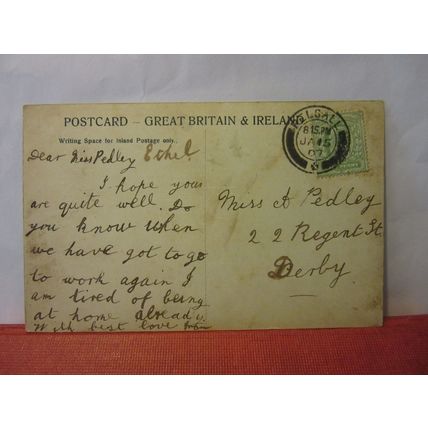 POSTCARD – GREAT BRITAIN & IRELAND
Writing Space for Inland Postage only.
Dear Miss Pedley Ethel
I hope you
are quite well. Do
you know when
we have got to go
to work again I
am tired of being
at home already.
With best love from
WALSALL
8 15 PM
JA 15
07
Miss A Pedley
22 Regent St.
Derby